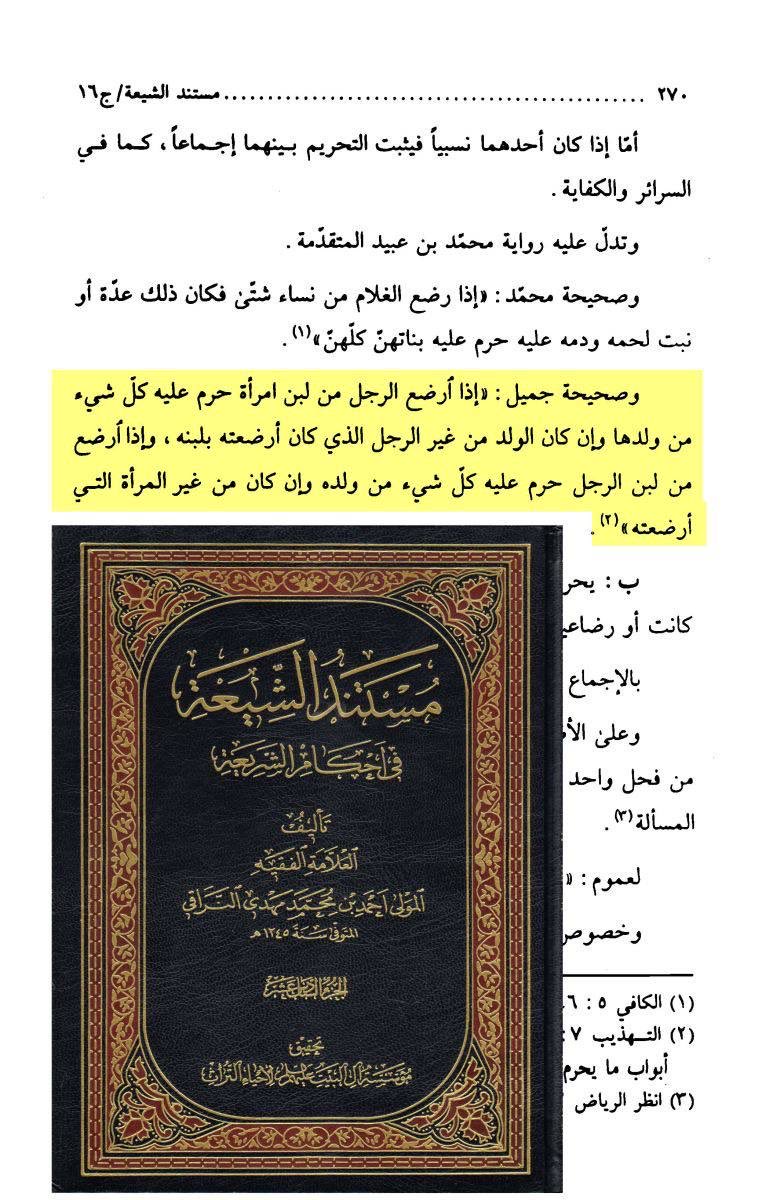 ٢٧٠ ................................................ مستند الشيعة/ج١٦
أمّا إذا كان أحدهما نسبياً فيثبت التحريم بينهما إجماعاً، كما في
السرائر والكفاية.
وتدلّ عليه رواية محمّد بن عبيد المتقدّمة.
وصحيحة محمّد: «إذا رضع الغلام من نساء شتّىٰ فكان ذلك عدّة أو
نبت لحمه ودمه عليه حرم عليه بناتهنّ كلّهنّ»(١).
وصحيحة جميل: «إذا أرضع الرجل من لبن امرأة حرم عليه كلّ شيء
من ولدها وإن كان الولد من غير الرجل الذي كان أرضعته بلبنه، وإذا أرضع
من لبن الرجل حرم عليه كلّ شيء من ولده وإن كان من غير المرأة التي
أرضعته»(٢).
ب: يحر
كانت أو رضاعي
بالإجماع
وعلىٰ الأ
من فحل واحد
المسألة(٣).
لعموم: «
وخصوص
(١) الكافي ٥: ٦
(٢) التهذيب ٧:
أبواب ما يحرم
(٣) انظر الرياض
مُسْتَنَدُ الشِّيعَةِ
في أحكام الشريعة
تأليف
العلامة الفقيه
المولى أحمد بن محمد مهدي النراقي
المتوفى سنة ١٢٤٥ هـ
الجزء السادس عشر
تحقيق
مؤسسة آل البيت عليهم السلام لإحياء التراث